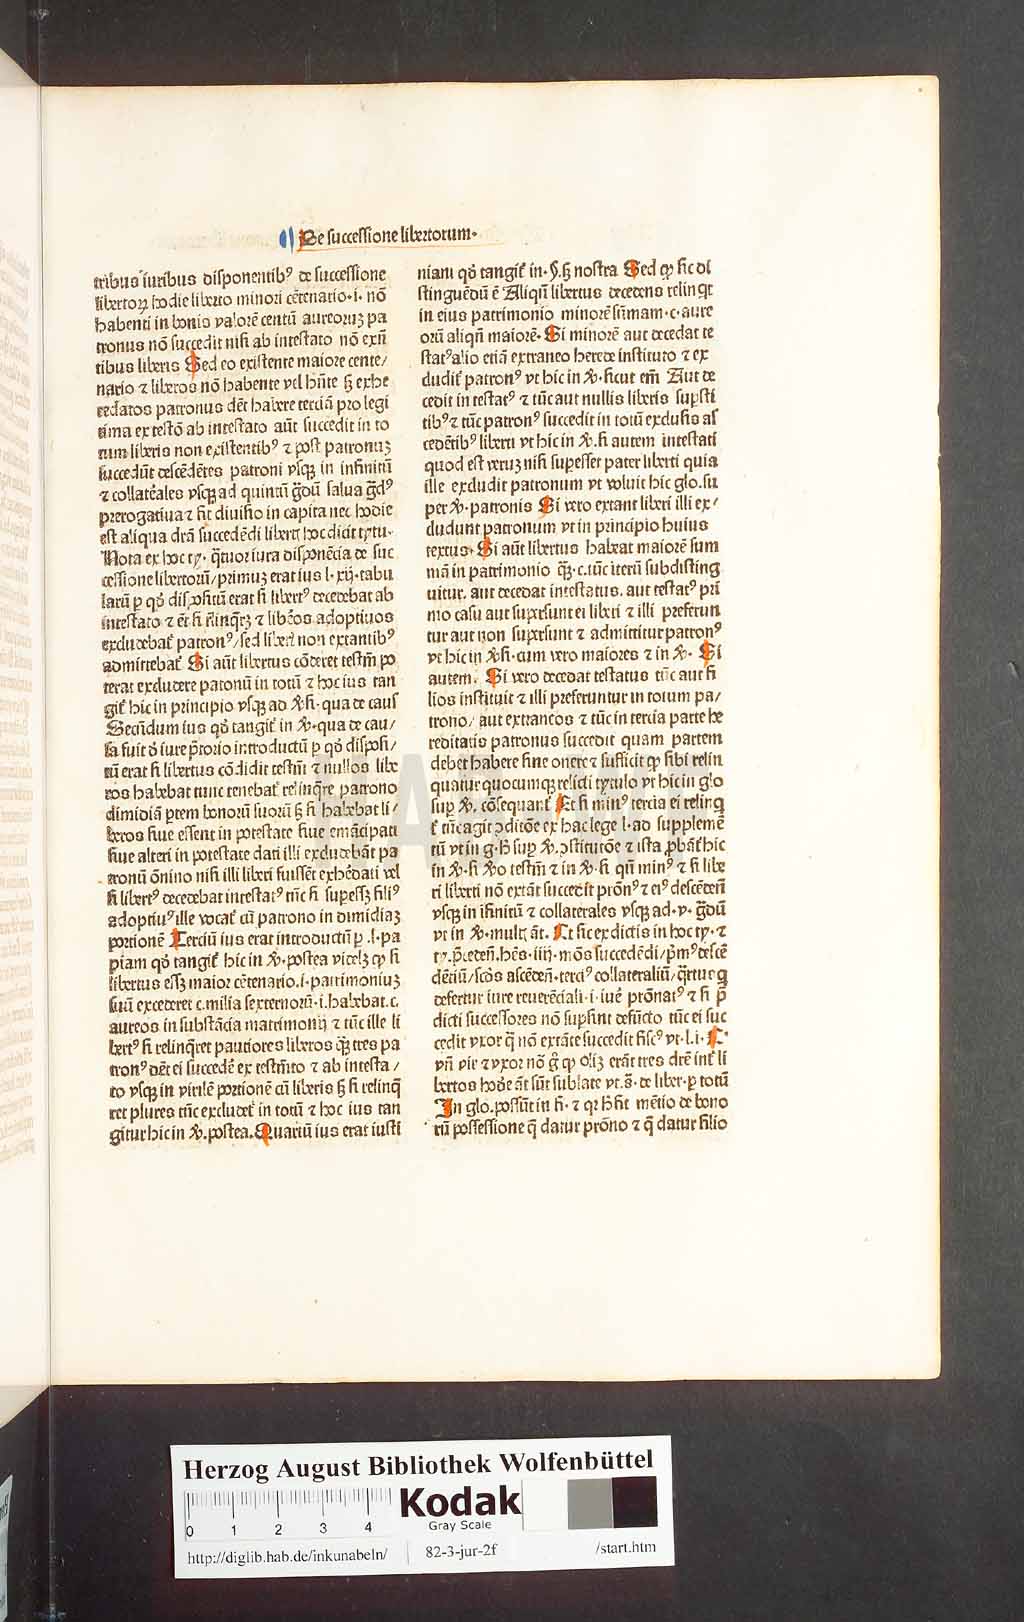 De successione libertorum.
tribus iuribus disponentibꝰ de successione
libertoꝝ hodie liberto minori cētenario.i. nō
habenti in bonis valorē centū aureoruʒ pa
tronus nō succedit nisi ab intestato nō extñ
tibus liberis Sed eo existente maiore cente/
nario ⁊ liberos nō habente vel hn̄te ꝫ exhe
redatos patronus dēt habere terciā pro legi
tima ex testō ab intestato aūt succedit in to
tum liberis non existentibꝰ ⁊ post patronuʒ
succedūt descēdētes patroni vsqꝫ in infinitū
⁊ collaterales vsqꝫ ad quintū gdū salua gdꝰ
prerogatiua ⁊ fit diuisio in capita nec hodie
est aliqua drā succedēdi libert hoc dicit tytu.
Nota ex hoc ty. qtuor iura disponēcia de suc
cessione libertorū/primuʒ erat ius l. xij. tabu
larū p qd dispositū erat si libertꝰ decedebat ab
intestato ⁊ ēt si relinqret ⁊ liberos adoptiuos
excludebat patronꝰ/sed liberi non extantibꝰ
admittebat Si aūt libertus cōderet testm̄ po
terat excludere patonū in totū ⁊ hoc ius tan
git hic in principio vsqꝫ ad ꝟ. si. qua de caus
Secūdum ius qd tangit in ꝟ. qua de cau/
sa fuit d iure ptorio introductū p qd disposi/
tū erat si libertus cōdidit testm̄ ⁊ nullos libe
ros habebat tunc tenebat relinqre patrono
dimidiā ptem bonorū suorū ꝫ si habebat li/
beros siue essent in potestate siue emācipati
siue alteri in potestate dati illi excludebāt pa
tronū ōnino nisi illi liberi fuissēt exhēdati vel
si libertꝰ decedebat intestatꝰ tūc si supesset filiꝰ
adoptiuꝰ ille vocat cū patrono in dimidiaʒ
portionē Terciū ius erat introductū p .l. pa
piam qd tangit hic in ꝟ. postea videlꝫ qp si
libertus esset maior cētenario.i. patrimoniuʒ
suū excederet c. milia sexternorū.i. habebat .c.
aureos in substācia matrimonij ⁊ tūc ille li
bertꝰ si relinqret pautiores liberos qꝫ tres pa
tronꝰ dēt ei succedē ex testm̄to ⁊ ab intesta/
to vsqꝫ in virilē portionē cū liberis ꝫ si relinq
ret plures tūc excludet in totū ⁊ hoc ius tan
gitur hic in ꝟ. postea. Quartū ius erat iusti
niani qd tangit in .§. ꝫ nostra Sed qp sic di
stinguēdū ē Aliqn̄ libertus decedens relinqt
in eius patrimonio minorē sūmam .c. aure
orū aliqn̄ maiorē. Si minorē aut decedat te
statꝰ alio etiā extraneo herede instituto ⁊ ex
cludit patronꝰ vt hic in ꝟ. sicut em̄ Aut de
cedit intestatꝰ ⁊ tūc aut nullis liberis supsti
tibꝰ ⁊ tūc patronꝰ succedit in totū exclusis as
cedētibꝰ liberti vt hic in ꝟ. si autem intestati
quod est veruʒ nisi supesset pater liberti quia
ille excludit patronum vt voluit hic glo. su
per ꝟ. patronis Si vero extant liberi illi ex/
cludunt patronum vt in principio huius
textus. Si aūt libertus habeat maiorē sum
mā in patrimonio qꝫ .c. tūc iterū subdisting
uitur. aut decedat intestatus. aut testatꝰ pri
mo casu aut supersunt ei liberi ⁊ illi preferun
tur aut non supersunt ⁊ admittitur patronꝰ
vt hic in ꝟ. si. cum vero maiores ⁊ in ꝟ. Si
autem. Si vero decedat testatus tūc aut fi
lios instituit ⁊ illi preferuntur in totum pa/
trono/ aut extraneos ⁊ tūc in tercia parte he
reditatis patronus succedit quam partem
debet habere sine onere ⁊ sufficit qp sibi relin
quatur quocumqꝫ relicti tytulo vt hic in glo
sup ꝟ. cōsequant Et si minꝰ tercia ei relinq
t tūc agit ꝯditōe ex hac lege l. ad supplemē
tū vt in g. h sup ꝟ. ꝯstitutōe ⁊ ista pbāt hic
in ꝟ. si ꝟo testm̄ ⁊ in ꝟ. si qn̄ minꝰ ⁊ si libe
ri liberti nō extāt succedit prōnꝰ ⁊ eiꝰ descēden̄
vsqꝫ in ifinitū ⁊ collaterales vsqꝫ ad .v. gdū
vt in ꝟ. mult āt. Et sic ex dictis in hoc ty. ⁊
ty. pceden̄. hēs .iiij. mōs succedēdi/pmꝰ descē
dētiū/scds ascēden̄. terciꝰ collateraliū/qrtus q
defertur iure reuerēciali .i. iure prōnatꝰ ⁊ si p
dicti successores nō supsint defūcto tūc ei suc
cedit vxor q nō extāte succedit fiscꝰ vt .l. i. C.
vn̄ vir ⁊ vxor nō g qp olīʒ erāt tres drē int li
bertos hodie āt sūt sublate vt .s. de liber. p totū
In glo. possūt in fi. ⁊ qꝛ h fit mētio de bono
rū possessione q datur prōno ⁊ q datur filio
Herzog August Bibliothek Wolfenbüttel
0 1 2 3 4
Kodak
Gray Scale
http://diglib.hab.de/inkunabeln/ 82-3-jur-2f /start.htm
HAB